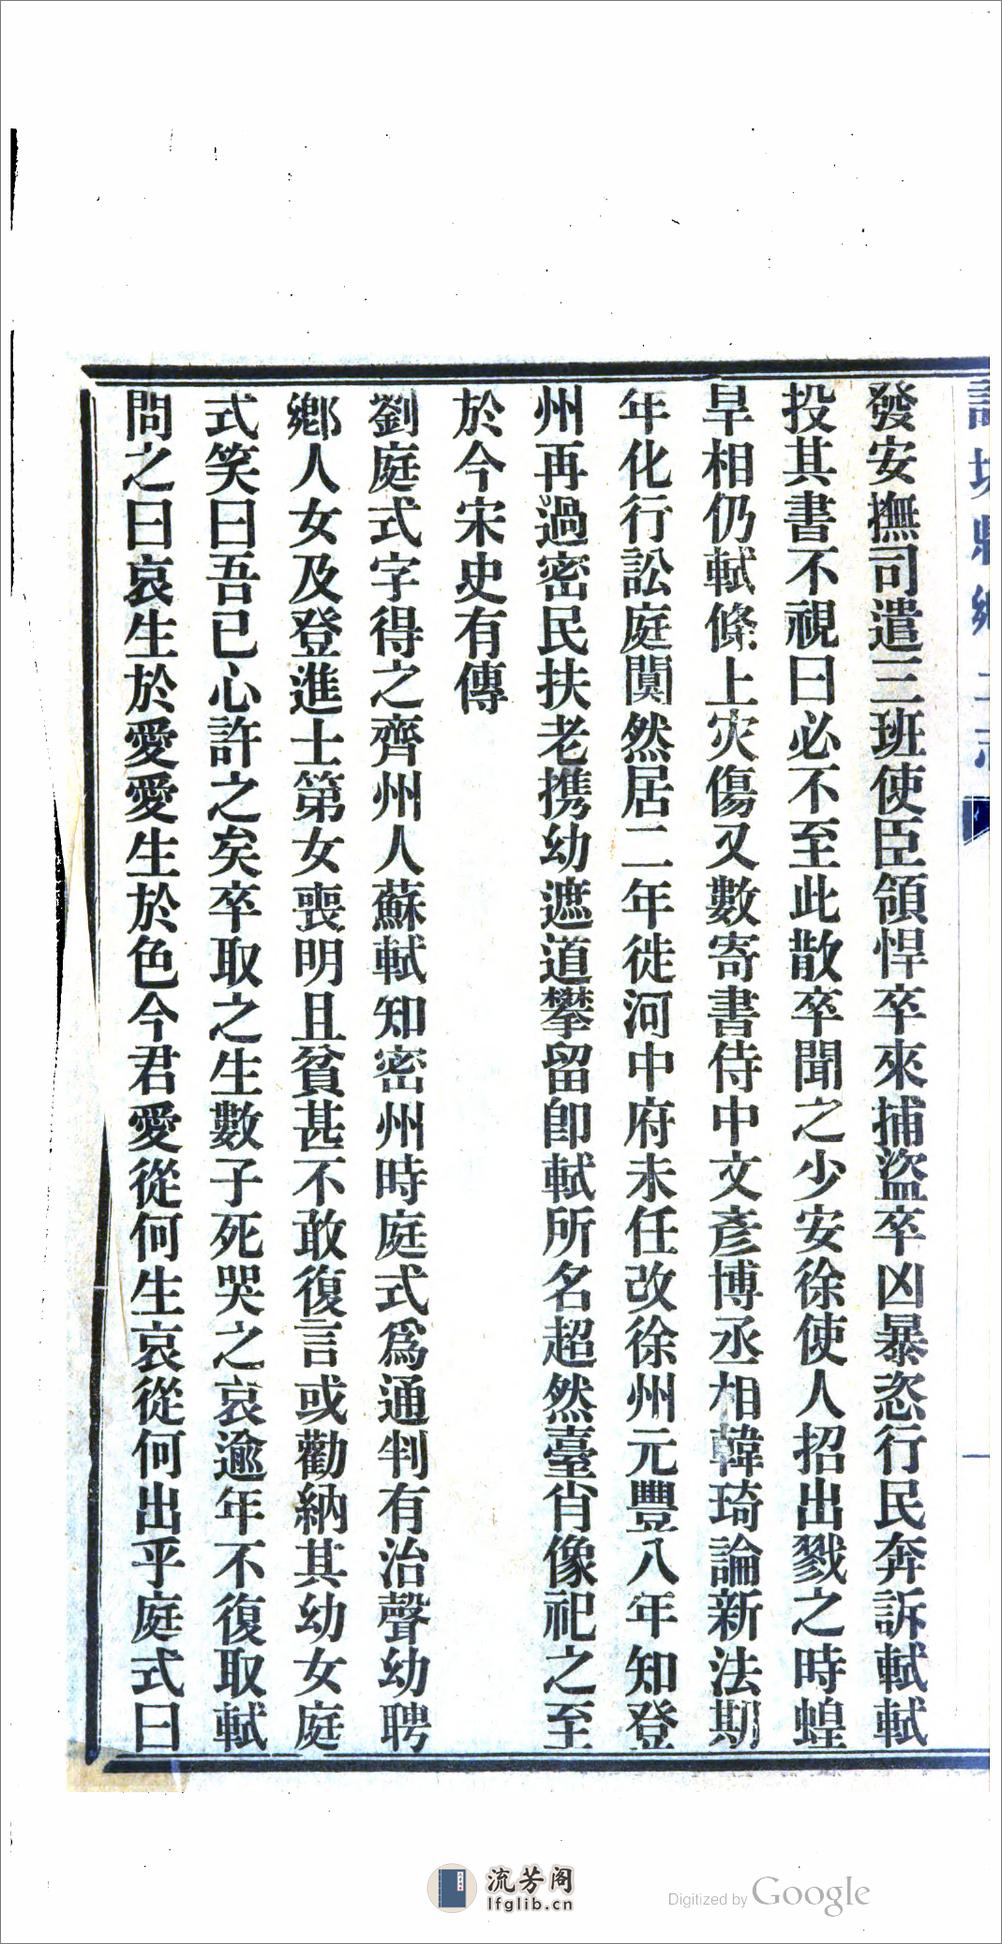 發安撫司遣三班使臣領悍卒來捕盜卒凶暴恣行民奔訴軾軾
投其書不視曰必不至此散卒聞之少安徐使人招出戮之時蝗
旱相仍軾條上災傷又數寄書侍中文彥博丞相韓琦論新法期
年化行訟庭闃然居二年徙河中府未任改徐州元豐八年知登
州再過密民扶老携幼遮道攀留卽軾所名超然臺肖像祀之至
於今宋史有傳
劉庭式字得之齊州人蘇軾知密州時庭式爲通判有治聲幼聘
鄉人女及登進士第女喪明且貧甚不敢復言或勸納其幼女庭
式笑曰吾已心許之矣卒取之生數子死哭之哀逾年不復取軾
問之曰哀生於愛愛生於色今君愛從何生哀從何出乎庭式曰
流芳阁
lfglib.cn
Digitized by Google